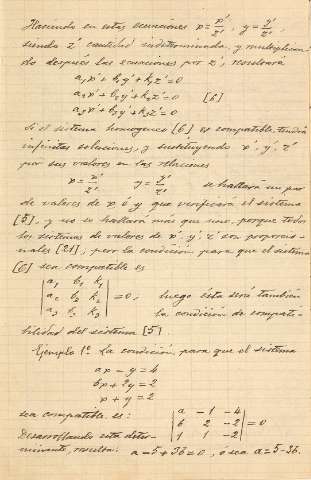 Haciendo en estas ecuaciones x = x'/z', y = y'/z',
siendo z' cantidad indeterminada, y multiplican-
do después las ecuaciones por z', resultará
a₁x' + b₁y' + k₁z' = 0
a₂x' + b₂y' + k₂z' = 0 [6]
a₃x' + b₃y' + k₃z' = 0
Si el sistema homogeneo [6] es compatible, tendrá
infinitas soluciones, y sustituyendo x', y', z'
por sus valores en las relaciones
x = x'/z' y = y'/z' se hallará un par
de valores de x é y que verificará el sistema
[5], y no se hallará más que uno, porque todos
los sistemas de valores de x', y', z' son proporcio-
nales [21]; pero la condición para que el sistema
[6] sea compatible es
| a₁ b₁ k₁ |
| a₂ b₂ k₂ | = 0, luego ésta será también
| a₃ b₃ k₃ | la condición de compati-
bilidad del sistema [5].
Ejemplo 1º La condición para que el sistema
ax - y = 4
bx + 2y = 2
x + y = 2
sea compatible, es: | a -1 -4 |
| b 2 -2 | = 0
| 1 1 -2 |
Desarrollando este deter-
minante, resulta: a - 5 + 3b = 0, ó sea a = 5 - 3b.